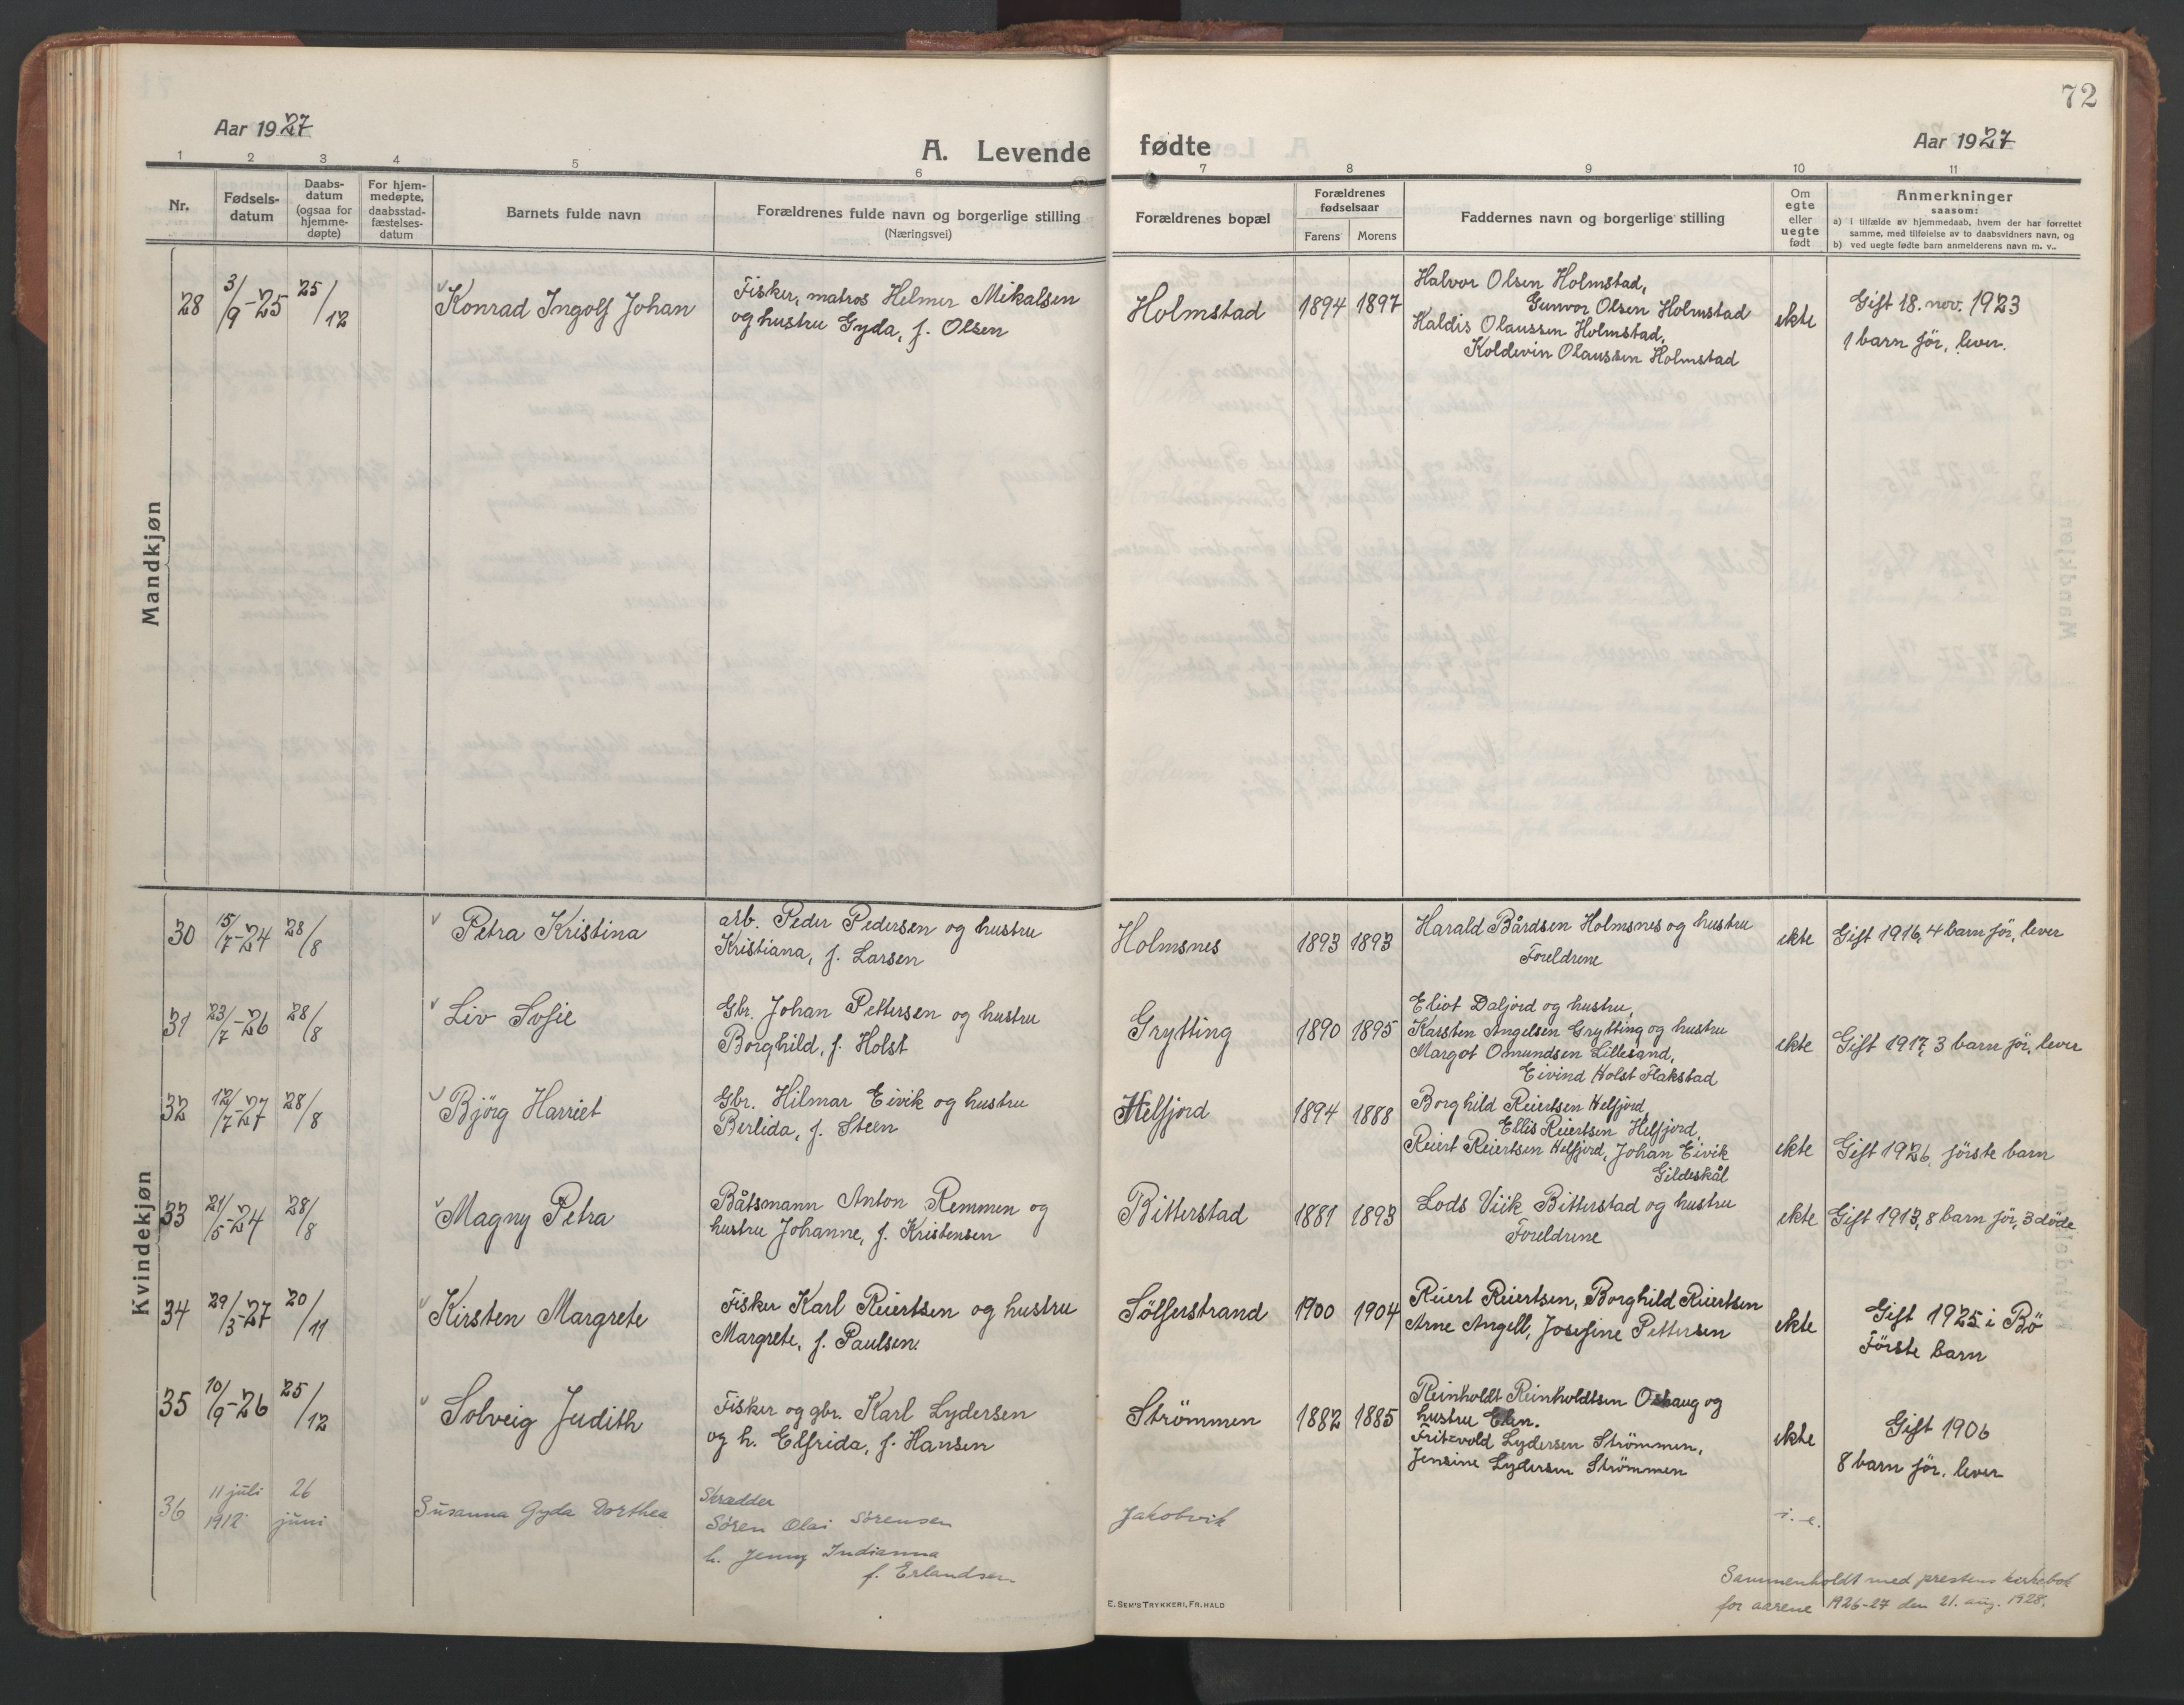 72
Aar 1927
A. Levende fødte
Aar 1927
1 2 3 4 5 6 7 8 9 10 11
Nr.
Fødsels-
datum
Daabs-
datum
(ogsaa for
hjemme-
døpte)
For hjem-
medøpte,
daabsstad-
fæstelses-
datum
Barnets fulde navn
Forældrenes fulde navn og borgerlige stilling
(Næringsvei)
Forældrenes bopæl
Forældrenes
fødselsaar
Farens Morens
Faddernes navn og borgerlige stilling
Om
egte
eller
uegte
født
Anmerkninger
saasom:
a) i tilfælde av hjemmedaab, hvem der har forrettet
samme, med tilføielse av to daabsvidners navn, og
b) ved uegte fødte barn anmelderens navn m. v..
Mandkjøn
28 3/9-25 25/12 Konrad Ingolf Johan
Fisker, matros Helmer Mikalsen
og hustru Gyda, f. Olsen
Holmstad 1894 1897
Halvor Olsen Holmstad,
Gunvor Olsen Holmstad
Haldis Olaussen Holmstad,
Koldevin Olaussen Holmstad
ekte
Gift 18. nov. 1923
1 barn før, lever.
Kvindekjøn
30 15/7-24 28/8 Petra Kristina
arb. Peder Pedersen og hustru
Kristiana, f. Larsen
Holmsnes 1893 1893
Harald Bårdsen Holmsnes og hustru
Foreldrene
ekte
Gift 1916, 4 barn før, lever
31 23/7-26 28/8 Liv Sofie
Gbr. Johan Pettersen og hustru
Borghild, f. Holst
Grytting 1890 1895
Eliot Daljord og hustru,
Karsten Angelsen Grytting og hustru
Margot Omundsen Lillesand,
Eivind Holst Flakstad
ekte
Gift 1917, 3 barn før, lever
32 12/7-27 28/8 Bjørg Harriet
Gbr. Hilmar Eivik og hustru
Berlida, f. Steen
Helfjord 1894 1888
Borghild Reiertsen Helfjord,
Ellis Reiertsen Helfjord,
Reiert Reiertsen Helfjord, Johan Eivik
Gildeskål
ekte
Gift 1926, første barn
33 21/5-24 28/8 Magny Petra
Båtsmann Anton Remmen og
hustru Johanne, f. Kristensen
Bitterstad 1881 1893
Lods Viik Bitterstad og hustru
Foreldrene
ekte
Gift 1913, 8 barn før, 3 døde
34 29/3-27 20/11 Kirsten Margrete
Fisker Karl Reiertsen og hustru
Margrete, f. Paulsen.
Sölferstrand 1900 1904
Reiert Reiertsen, Borghild Reiertsen
Arne Angell, Josefine Pettersen
ekte
Gift 1925 i Bö
Förste barn
35 10/9-26 25/12 Solveig Judith
Fisker og gbr. Karl Lydersen
og h. Elfrida, f. Hansen
Strömmen 1882 1885
Reinholdt Reinholdtsen Oshaug og
hustru Elen.
Fritzvold Lydersen Strömmen,
Jensine Lydersen Strömmen
ekte
Gift 1906
8 barn før, lever
36 11 juli 1912 26 juni Susanna Gyda Dorthea
Skrædder
Sören Olai Sörensen
h. Jenny Indianna
f. Erlandsen
Jakobvik
i. e.
Sammenholdt med prestens kirkebok
for aarene 1926-27 den 21. aug. 1928.
E. SEM'S TRYKKERI, FR.HALD